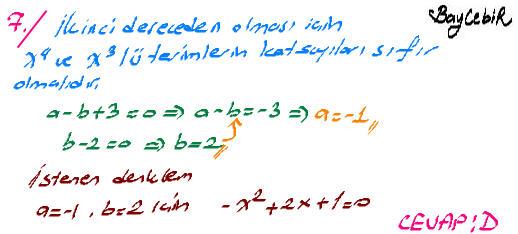 BayCebiR
7./ İkinci dereceden olması için
x⁴ ve x³ lü terimlerin katsayıları sıfır
olmalıdır.
a-b+3=0 ⇒ a-b=-3 ⇒ a=-1//
b-2=0 ⇒ b=2//
İstenen denklem
a=-1, b=2 için -x²+2x+1=0
CEVAP:D